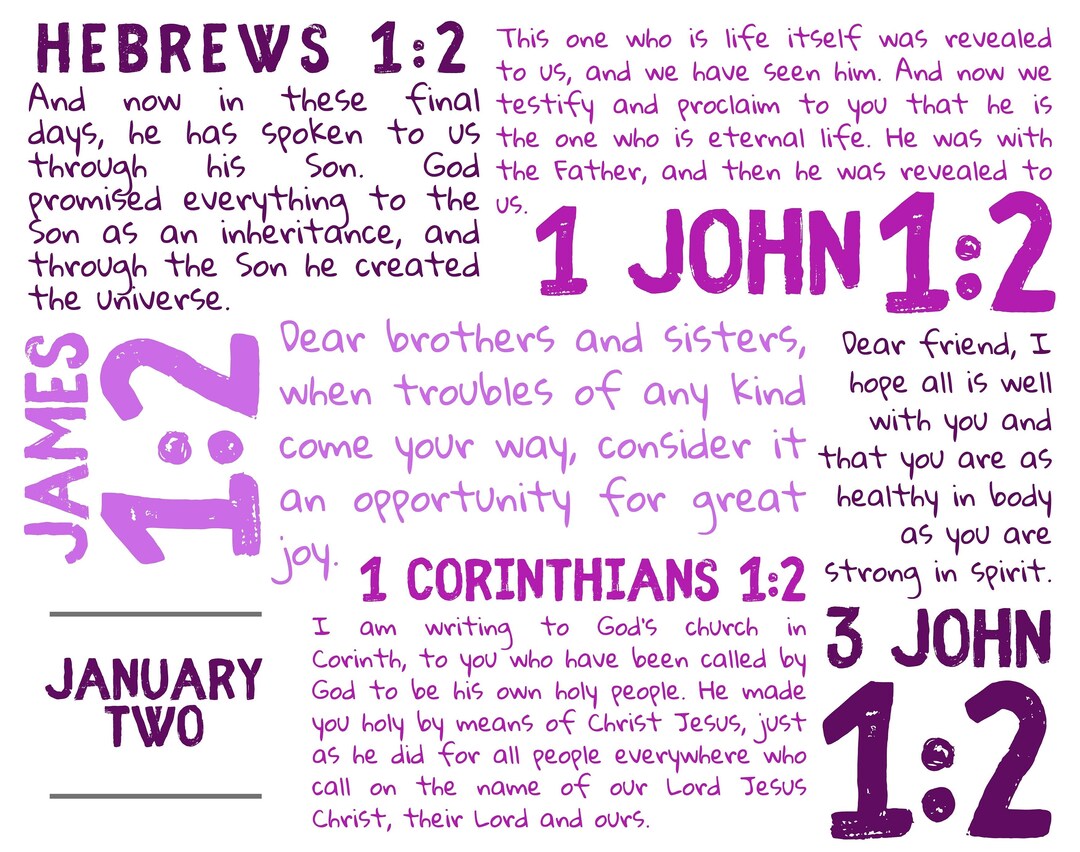 HEBREWS 1:2
And now in these final
days, he has spoken to us
through his Son. God
promised everything to the
Son as an inheritance, and
through the Son he created
the universe.
This one who is life itself was revealed
to us, and we have seen him. And now we
testify and proclaim to you that he is
the one who is eternal life. He was with
the Father, and then he was revealed to
us.
1 JOHN 1:2
JAMES
1:2
Dear brothers and sisters,
when troubles of any kind
come your way, consider it
an opportunity for great
joy.
Dear friend, I
hope all is well
with you and
that you are as
healthy in body
as you are
strong in spirit.
3 JOHN
1:2
1 CORINTHIANS 1:2
I am writing to God's church in
Corinth, to you who have been called by
God to be his own holy people. He made
you holy by means of Christ Jesus, just
as he did for all people everywhere who
call on the name of our Lord Jesus
Christ, their Lord and ours.
JANUARY
TWO